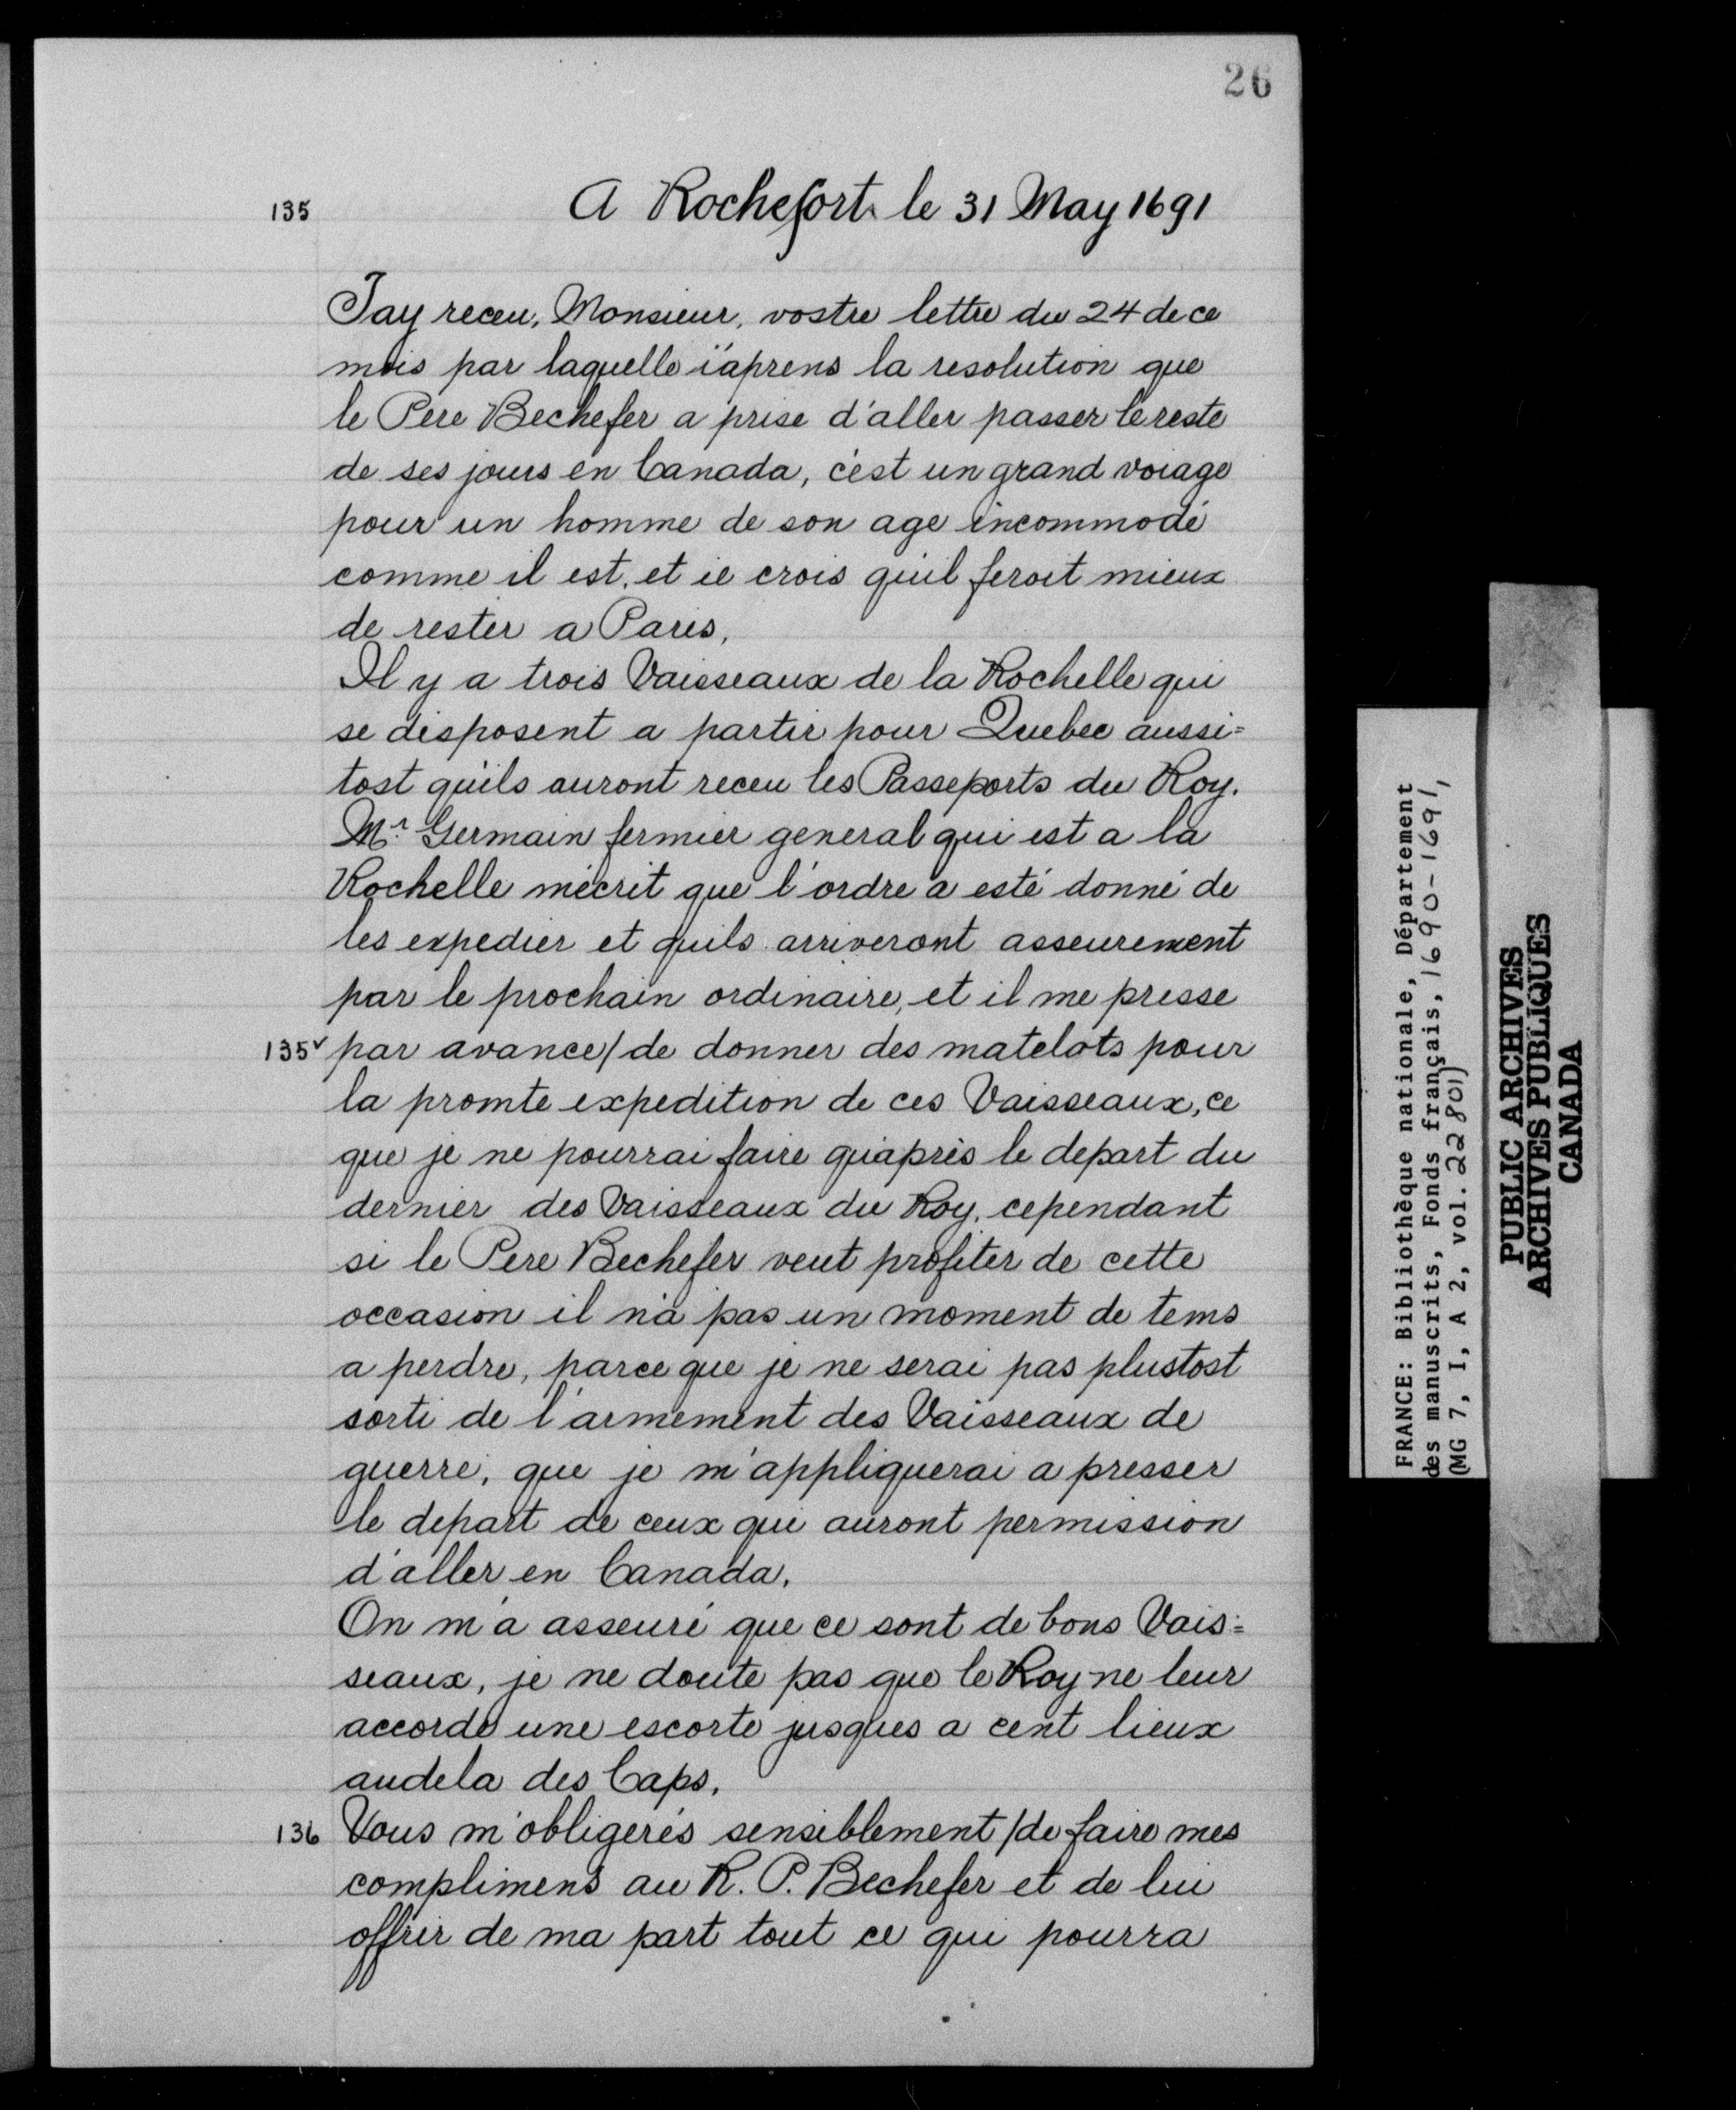 26
135 A Rochefort le 31 May 1691
Jay receu, Monsieur, vostre lettre du 24 de ce
mois par laquelle i'aprens la resolution que
le Pere Bechefer a prise d'aller passer le reste
de ses jours en Canada, c'est un grand voiage
pour un homme de son age incommodé
comme il est, et ie crois qu'il feroit mieux
de rester a Paris,
Il y a trois Vaisseaux de la Rochelle qui
se disposent a partir pour Quebec aussi=
tost qu'ils auront receu les Passeports du Roy.
Mr Germain fermier general qui est a la
Rochelle m'ecrit que l'ordre a esté donné de
les expedier et qu'ils arriveront asseurement
par le prochain ordinaire, et il me presse
135v par avance/de donner des matelots pour
la promte expedition de ces Vaisseaux, ce
que je ne pourrai faire qu'après le depart du
dernier des Vaisseaux du Roy, cependant
si le Pere Bechefer veut profiter de cette
occasion il n'a pas un moment de tems
a perdre, parce que je ne serai pas plustost
sorti de l'armement des Vaisseaux de
guerre, que je m'appliquerai a presser
le depart de ceux qui auront permission
d'aller en Canada.
On m'a asseuré que ce sont de bons Vais=
seaux, je ne doute pas que le Roy ne leur
accorde une escorte jusques a cent lieux
audela des Caps.
136 Vous m'obligerés sensiblement/de faire mes
complimens au R. P. Bechefer et de lui
offrir de ma part tout ce qui pourra
FRANCE: Bibliothèque nationale, Département
des manuscrits, Fonds français, 1690-1691,
(MG 7, I, A 2, vol. 22801)
PUBLIC ARCHIVES
ARCHIVES PUBLIQUES
CANADA